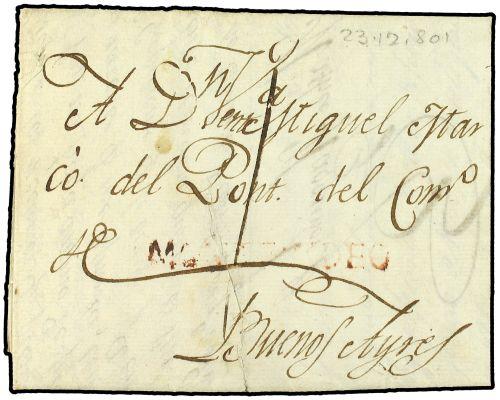 23.12.801
A Dn Vente Miguel Mar
có. del Pont. del Comº
de
MONTEVIDEO
Buenos Ayres